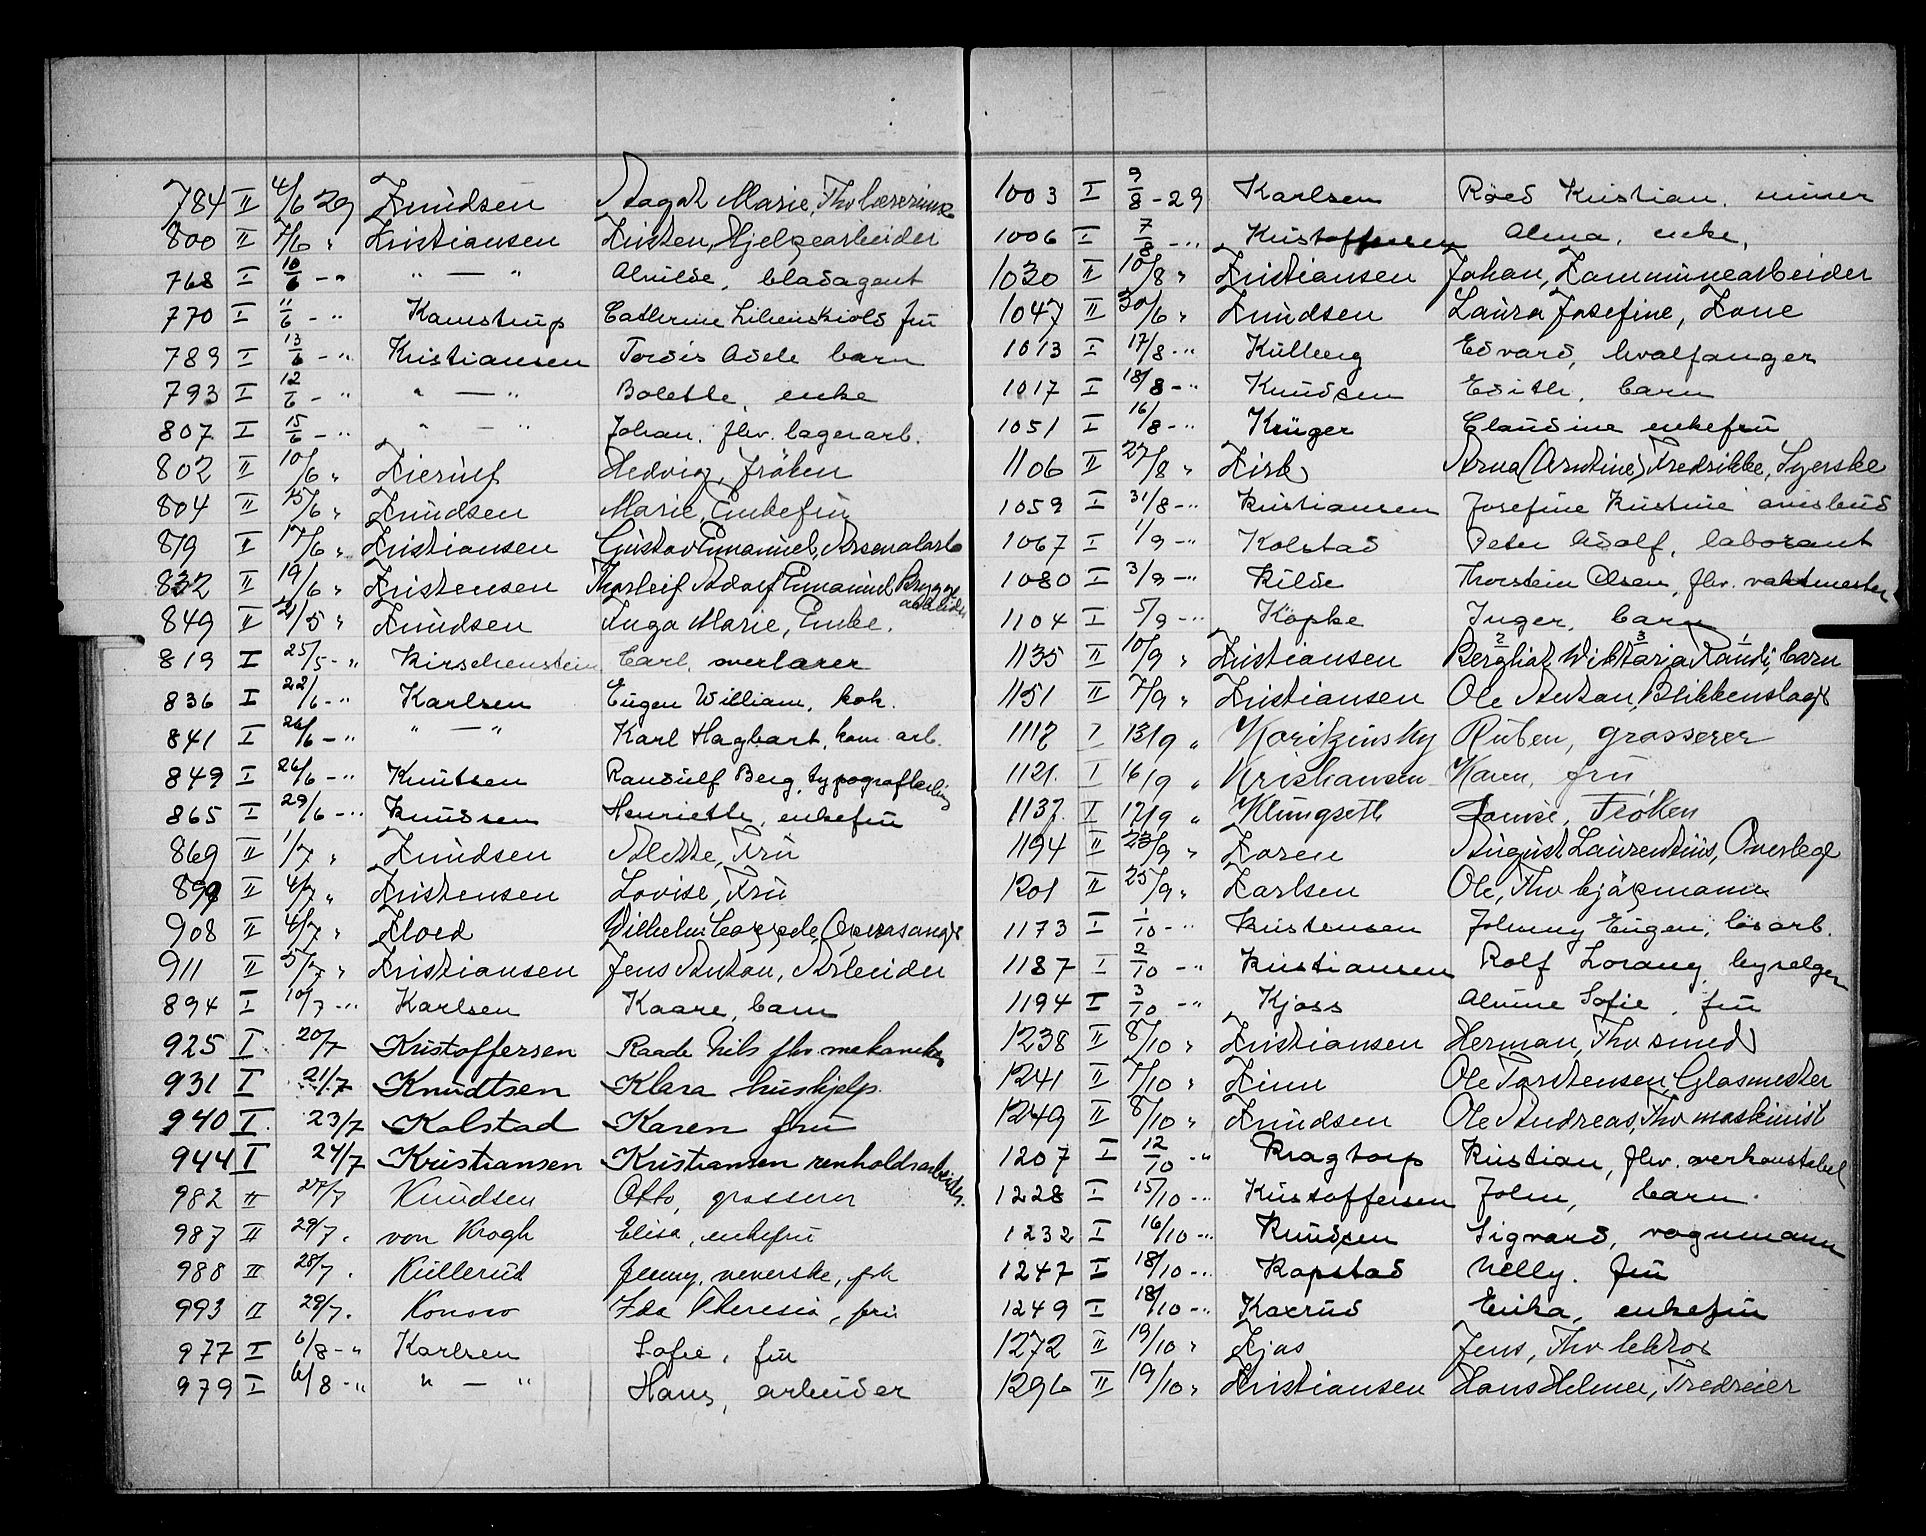 784 II 4/6 29 Knudsen Aagot Marie, Fhv lærerinne
800 II 7/6 " Kristiansen Kristen, Hjelpearbeider
768 I 10/6 - " " — " Alvilde, bladagent
770 I 11/6 - " Kamstrup Cathrine Lilienskiold fru
789 I 13/6 - " Kristiansen Tordis Adele barn
793 I 12/6 - " " — " Bolette, enke
807 I 15/6 - " " — " Johan, fhv. lagerarb.
802 II 10/6 " Kierulf Hedvig, frøken
804 II 15/6 " Knudsen Marie, Enkefru
819 II 17/6 " Kristiansen Gustav Emanuel, Arsenalarb
832 II 19/6 " Kristensen Thorleif Adolf Emanuel Brygge arbeider
849 II 21/5 " Knudsen Inga Marie, Enke.
819 I 25/5 - " Kirschenstein Carl, overlærer
836 I 22/6 - " Karlsen Eugen William, kok.
841 I 26/6 - " " — " Karl Hagbart, kom. arb.
849 I 26/6 - " Knutsen Randulf Berg, typograflærling
865 I 29/6 - " Knudsen Henriette, enkefru
869 II 1/7 " Knudsen Alette, Fru
899 II 4/7 " Kristensen Lovise, Fru
908 II 4/7 " Kloed Vilhelm Cappele, Operasangr
911 II 5/7 " Kristiansen Jens Anton, Arbeider
894 I 10/7 - " Karlsen Kaare, barn
925 I. 20/7 Kristoffersen Raade Nils fhv mekaniker
931 I 21/7 Knudtsen Klara hushjelp.
940 I. 23/7 Kolstad Karen fru
944 I 24/7 Kristiansen Kristiansen renholdsarbeider.
982 II 27/7 Knudsen Otto, grosserer
987 II 29/7. von Krogh Elisa, enkefru
988 II 28/7. Kullerud Jenny, veverske, frk
993 II 29/7. Konow Ida Theresia, fru
977 I 6/8 - " Karlsen Sofie, fru
979 I 6/8 - " " — " Hans, arbeider
1003 I 9/8 - 29 Karlsen Röed Kristian, murer
1006 I 7/8 - " Kristoffersen Alma, enke,
1030 II 10/8 " Kristiansen Johan, Kommunearbeider
1047 II 30/6 " Knudsen Laura Josefine, Kone
1013 I 17/8 - " Kulberg Edvard, hvalfanger
1017 I 18/8 - " Knudsen Edith, barn
1051 I 16/8 - " Krüger Claudine enkefru
1106 II 27/8 " Kirk Arna (Arntine) Fredrikke, Syerske
1059 I 31/8 - " Kristiansen Josefine Kristine avisbud
1067 I 1/9 - " Kolstad Peter Adolf, laborant
1080 I 3/9 - " Kilde Thorstein Olsen, fhv. vaktmester
1104 I 5/9 - " Köpke Inger, barn
1135 II 10/9 " Kristiansen Bergliot Wiktoria Randi, barn
1151 II 7/9 " Kristiansen Ole Anton, Blikkenslagr
1112 I 13/9 " Koritzinsky Ruben, grosserer
1121. I 16/9 " Kristiansen Karen, fru
1137. I 17/9 " Klungseth Lovise, Frøken
1194 II 23/9 " Koren August Laurentius, Overlege
1201 II 25/9 " Karlsen Ole, Fhv kjøpmann
1173 I 1/10 - " Kristensen Johnny Eugen, løsarb.
1187 I 2/10 - " Kristiansen Rolf Lorang, bryselger
1194 I 3/10 - " Kjoss Alvine Sofie, fru
1238 II 8/10 " Kristiansen Herman, Fhv smed
1241 II 7/10 " Kinn Ole Torstensen, Glasmester
1249 II 8/10 " Knudsen Ole Andreas, Fhv maskinist
1207 I 12/10 - " Kragtorp Kristian, fhv. overkonstabel
1228 I 15/10 - " Kristoffersen John, barn.
1232 I 16/10 - " Knudsen Sigvard, vognmann
1247 I 18/10 - " Kopstad Nelly. fru
1249 I 18/10 - " Koxrud Erika, enkefru
1272 II 19/10 " Kjos Jens, Fhv lektor
1296 II 19/10 " Kristiansen Hans Helmer, Tredreier